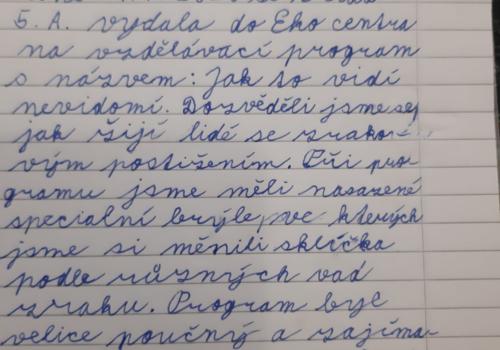 5. A. vydala do Eko centra
na vzdělávací program
s názvem: Jak to vidí
nevidomí. Dozvěděli jsme se,
jak žijí lidé se zrako-
vým postižením. Při pro-
gramu jsme měli nasazené
specialní brýle, ve kterých
jsme si měnili sklíčka
podle různých vad
zraku. Program byl
velice poučný a zajíma-